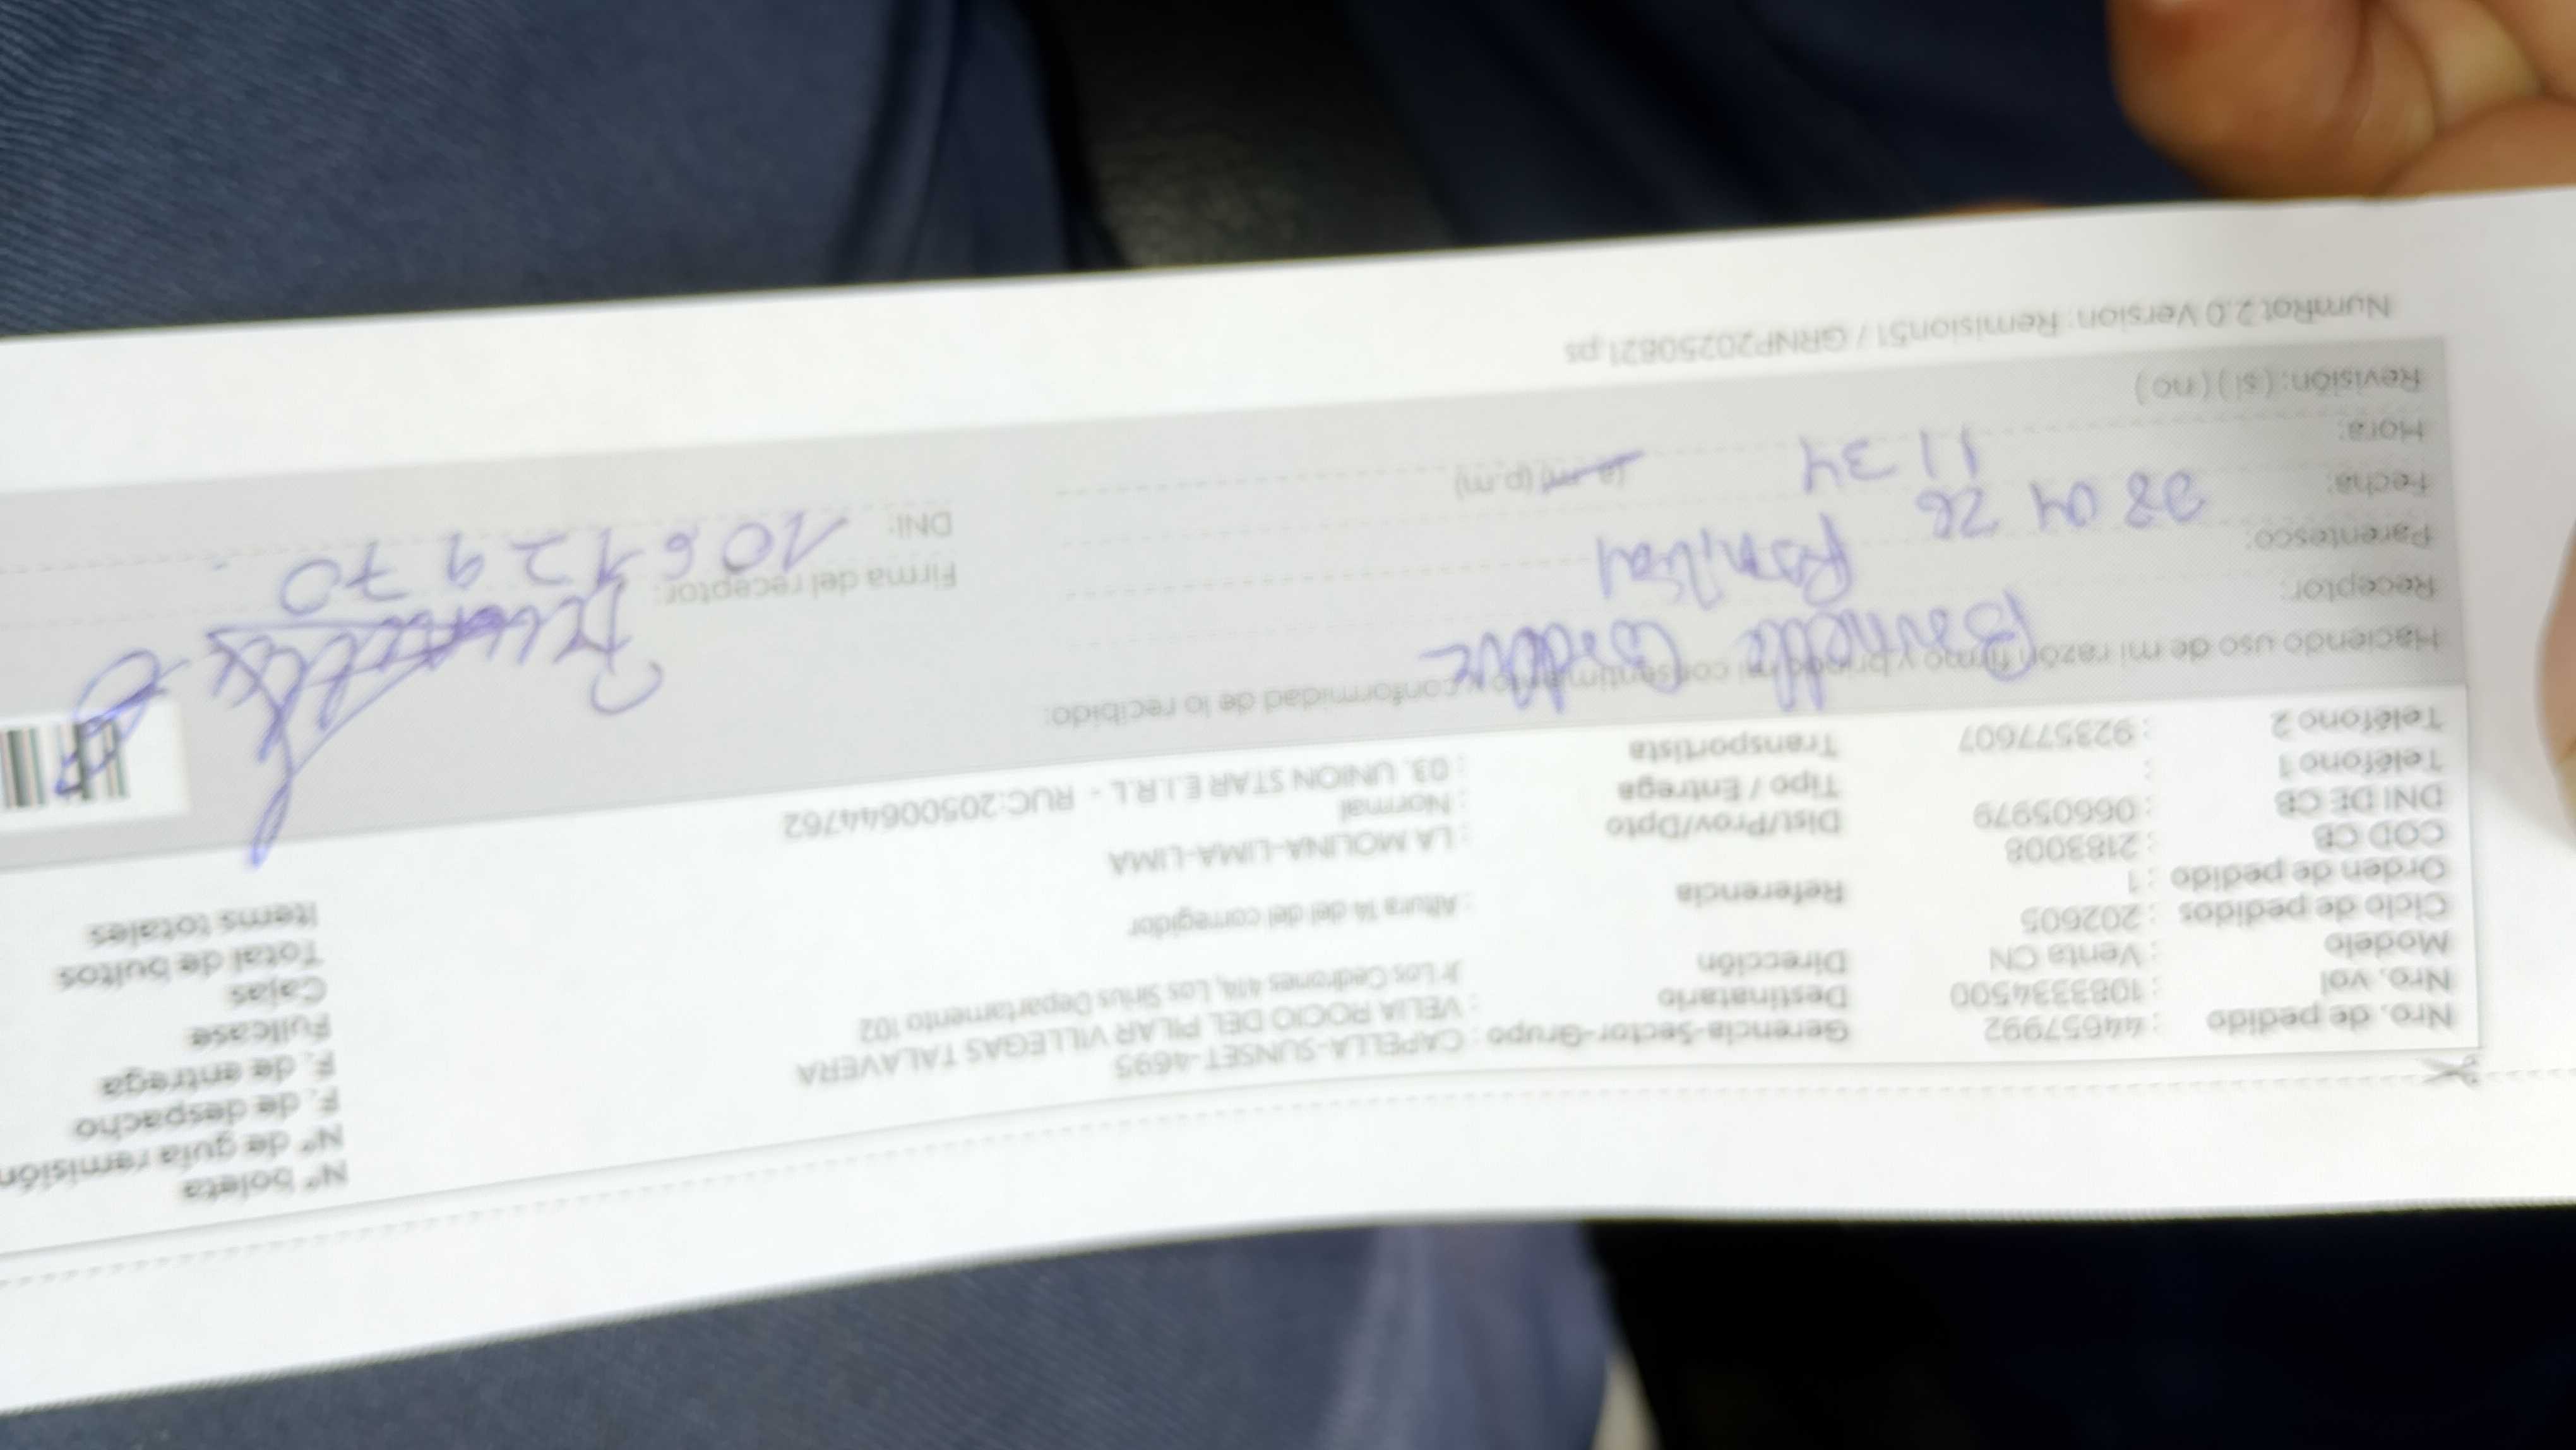 Nº boleta
Nº de guía remisión
F. de despacho
F. de entrega
Fullcase
Cajas
Total de bultos
Items totales
Nro. de pedido : 44657992 Gerencia-Sector-Grupo : CAPELLA-SUNSET-4695
Nro. vol : 1083334500 Destinatario : VELIA ROCIO DEL PILAR VILLEGAS TALAVERA
Modelo : Venta CN Dirección Jr Los Cedrones 414, Los Sirius Departamento 102
Ciclo de pedidos : 202605
Orden de pedido : 1 Referencia : Altura 14 del corregidor
COD CB : 2183008
DNI DE CB : 06605979 Dist/Prov/Dpto : LA MOLINA-LIMA-LIMA
Teléfono 1 : Tipo / Entrega : Normal
Teléfono 2 : 923577607 Transportista : 03. UNION STAR E.I.R.L - RUC:20500644762
Haciendo uso de mi razón firmo y brindo mi consentimiento y conformidad de lo recibido:
Receptor:
Parentesco: Familiar
Fecha: 28 04 26
Hora: 11 34 (a.m) (p.m)
Revisión: (si) (no)
Firma del receptor:
DNI: 10612970
NumRot 2.0 Version: Remision51 / GRNP20250821.ps